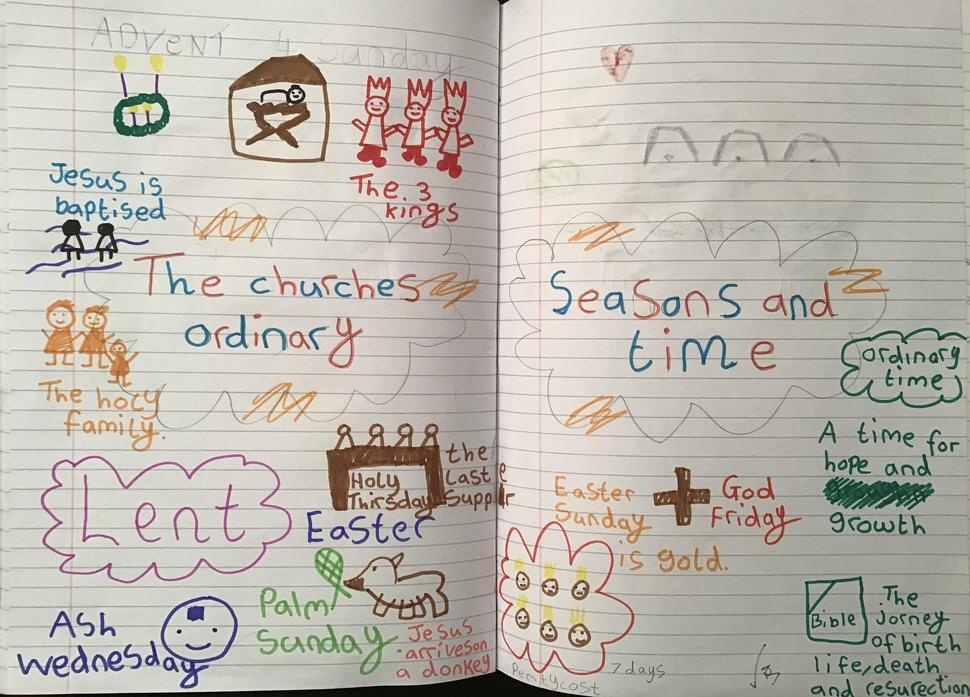 ADVENT 4 Sunday
The 3
kings
Jesus is
baptised
The churches
ordinary
The holy
family.
Lent
Holy
Thirsday
the
Last
Supper
Easter
Palm
Sunday.
Jesus
arriveson
a donkey
Ash
Wednesday
Seasons and
time
ordinary
time
A time for
hope and
growth
Easter
Sunday
is gold.
God
Friday
Bible
The
jorney
of birth
life,death
and resurection
Pentycost
7 days